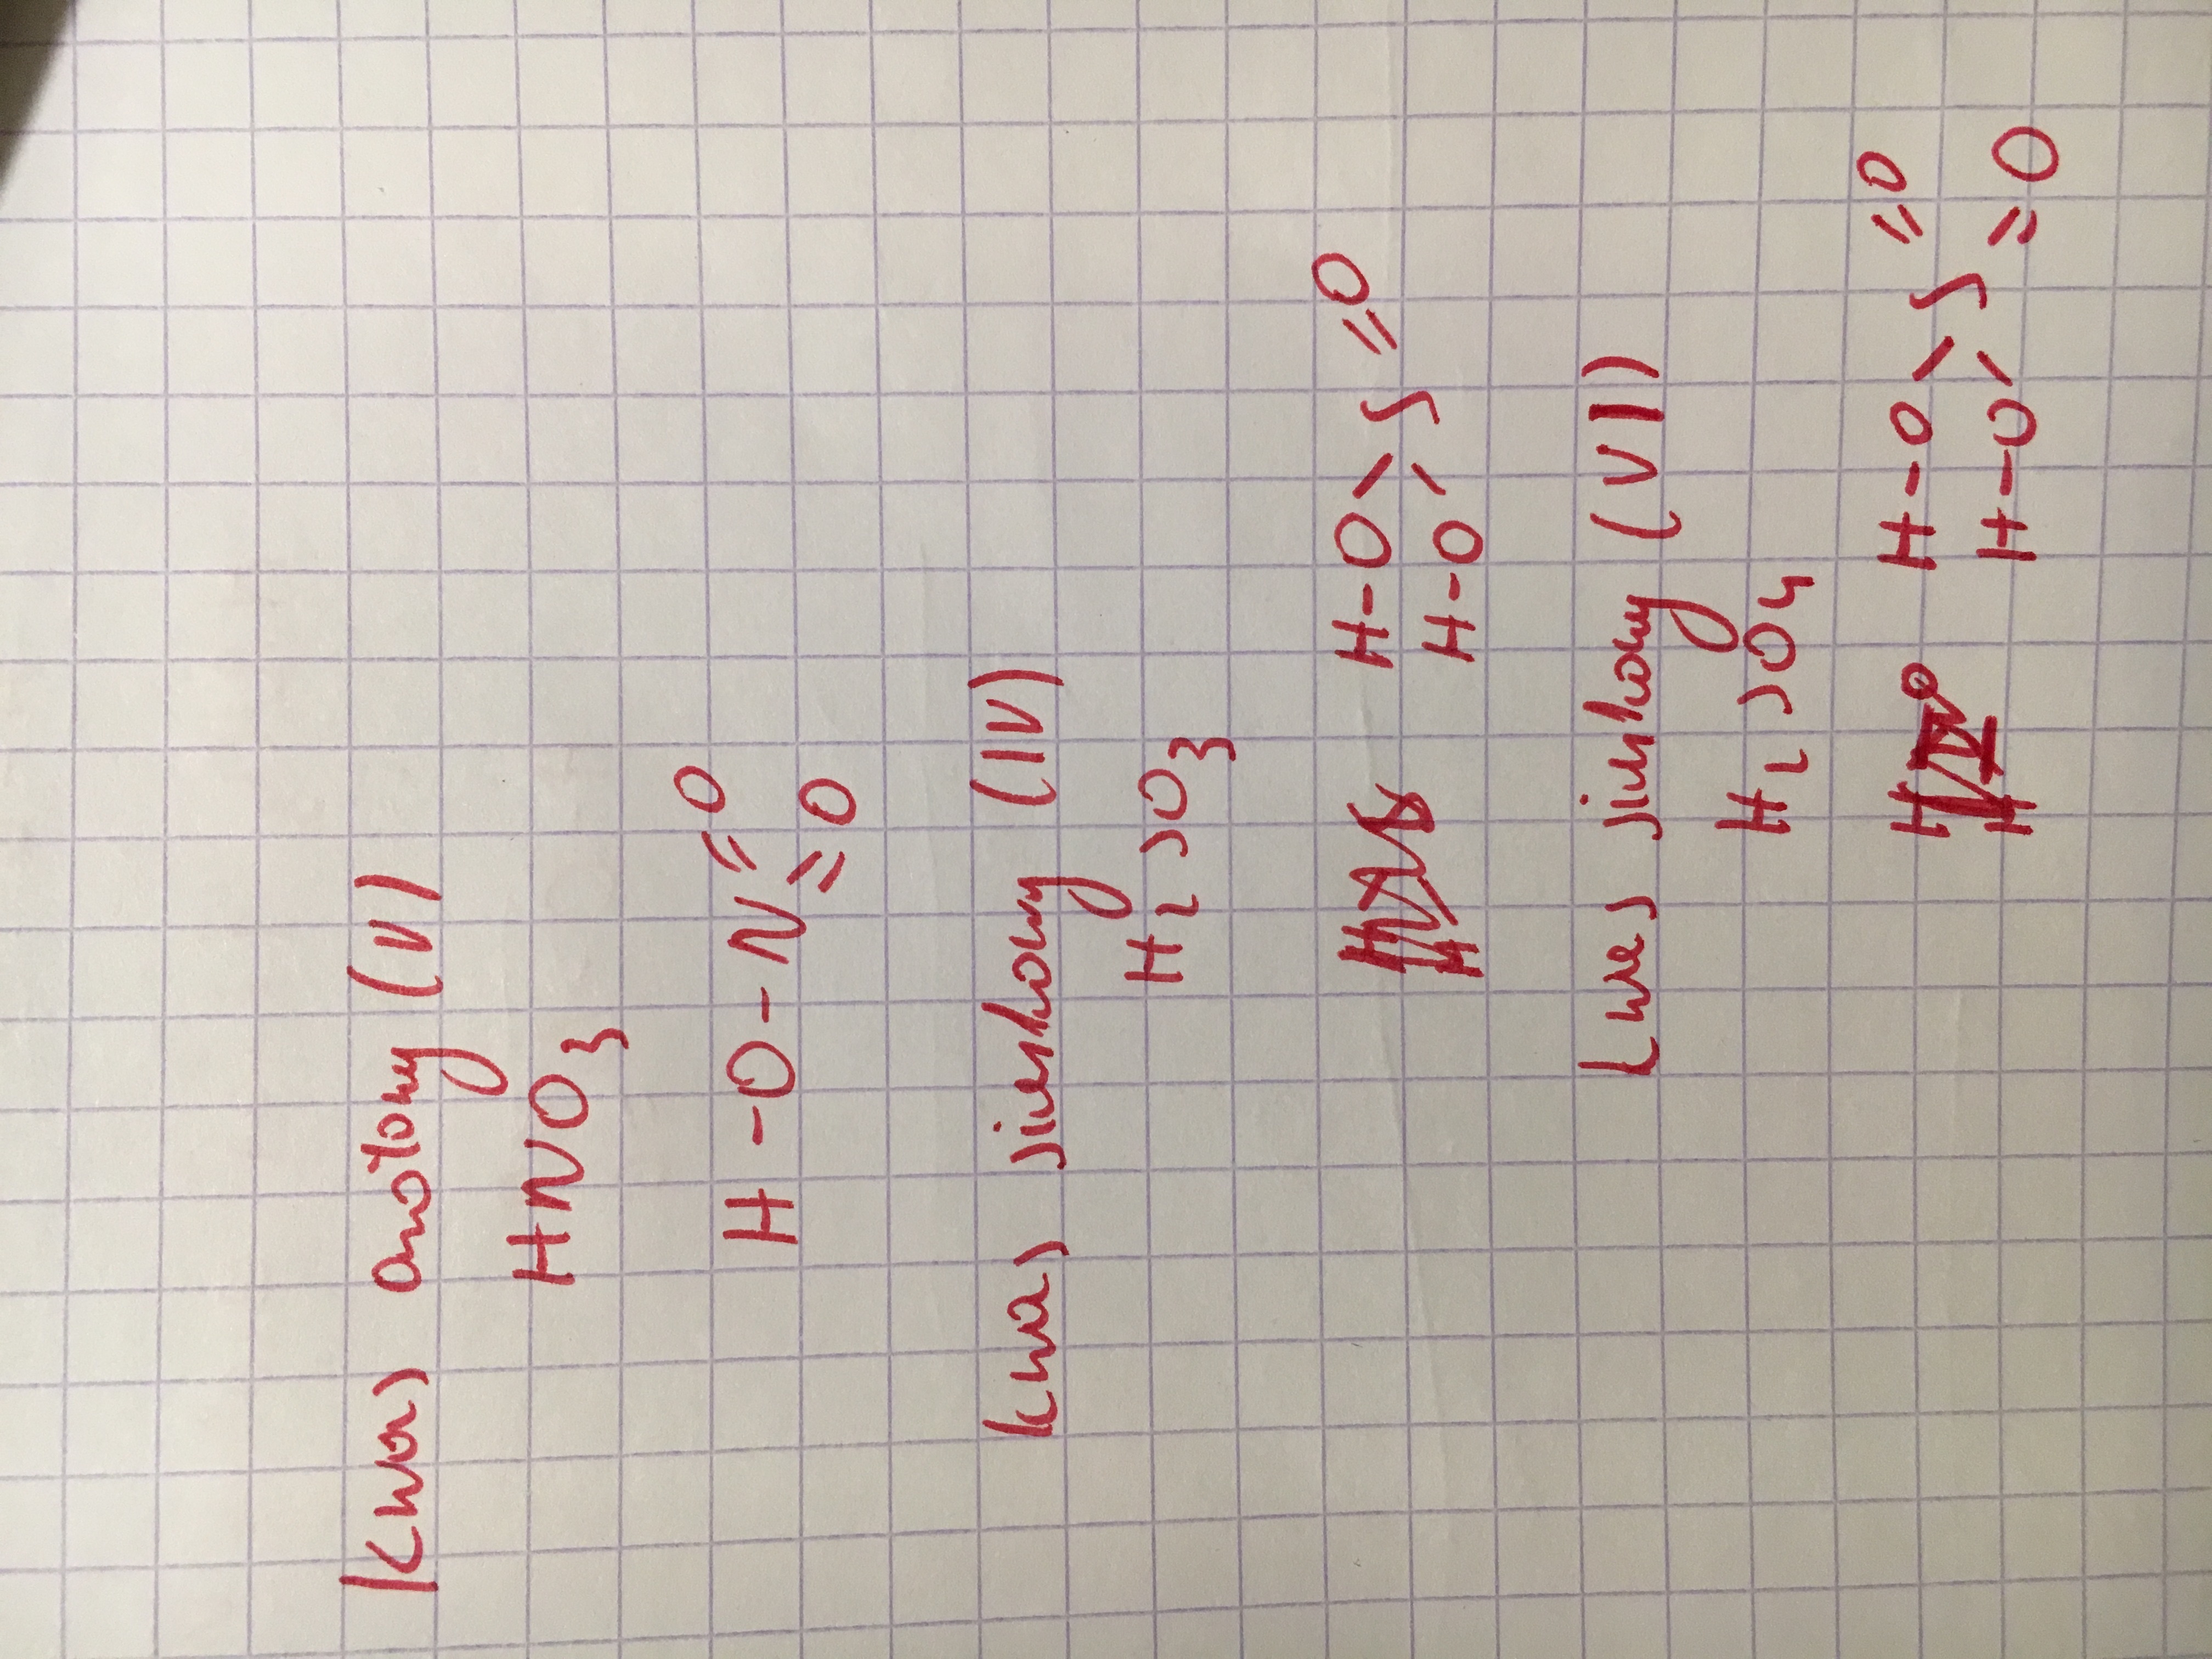 kwas azotowy (V)
HNO3
H-O-N=O
=O
kwas siarkowy (IV)
H2SO3
H-O\S=O
H-O/
kwas siarkowy (VI)
H2SO4
H-O\S=O
H-O/ =O